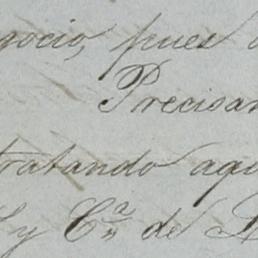 gocio, pues
Precisa
tratando aqu
y C.ª de